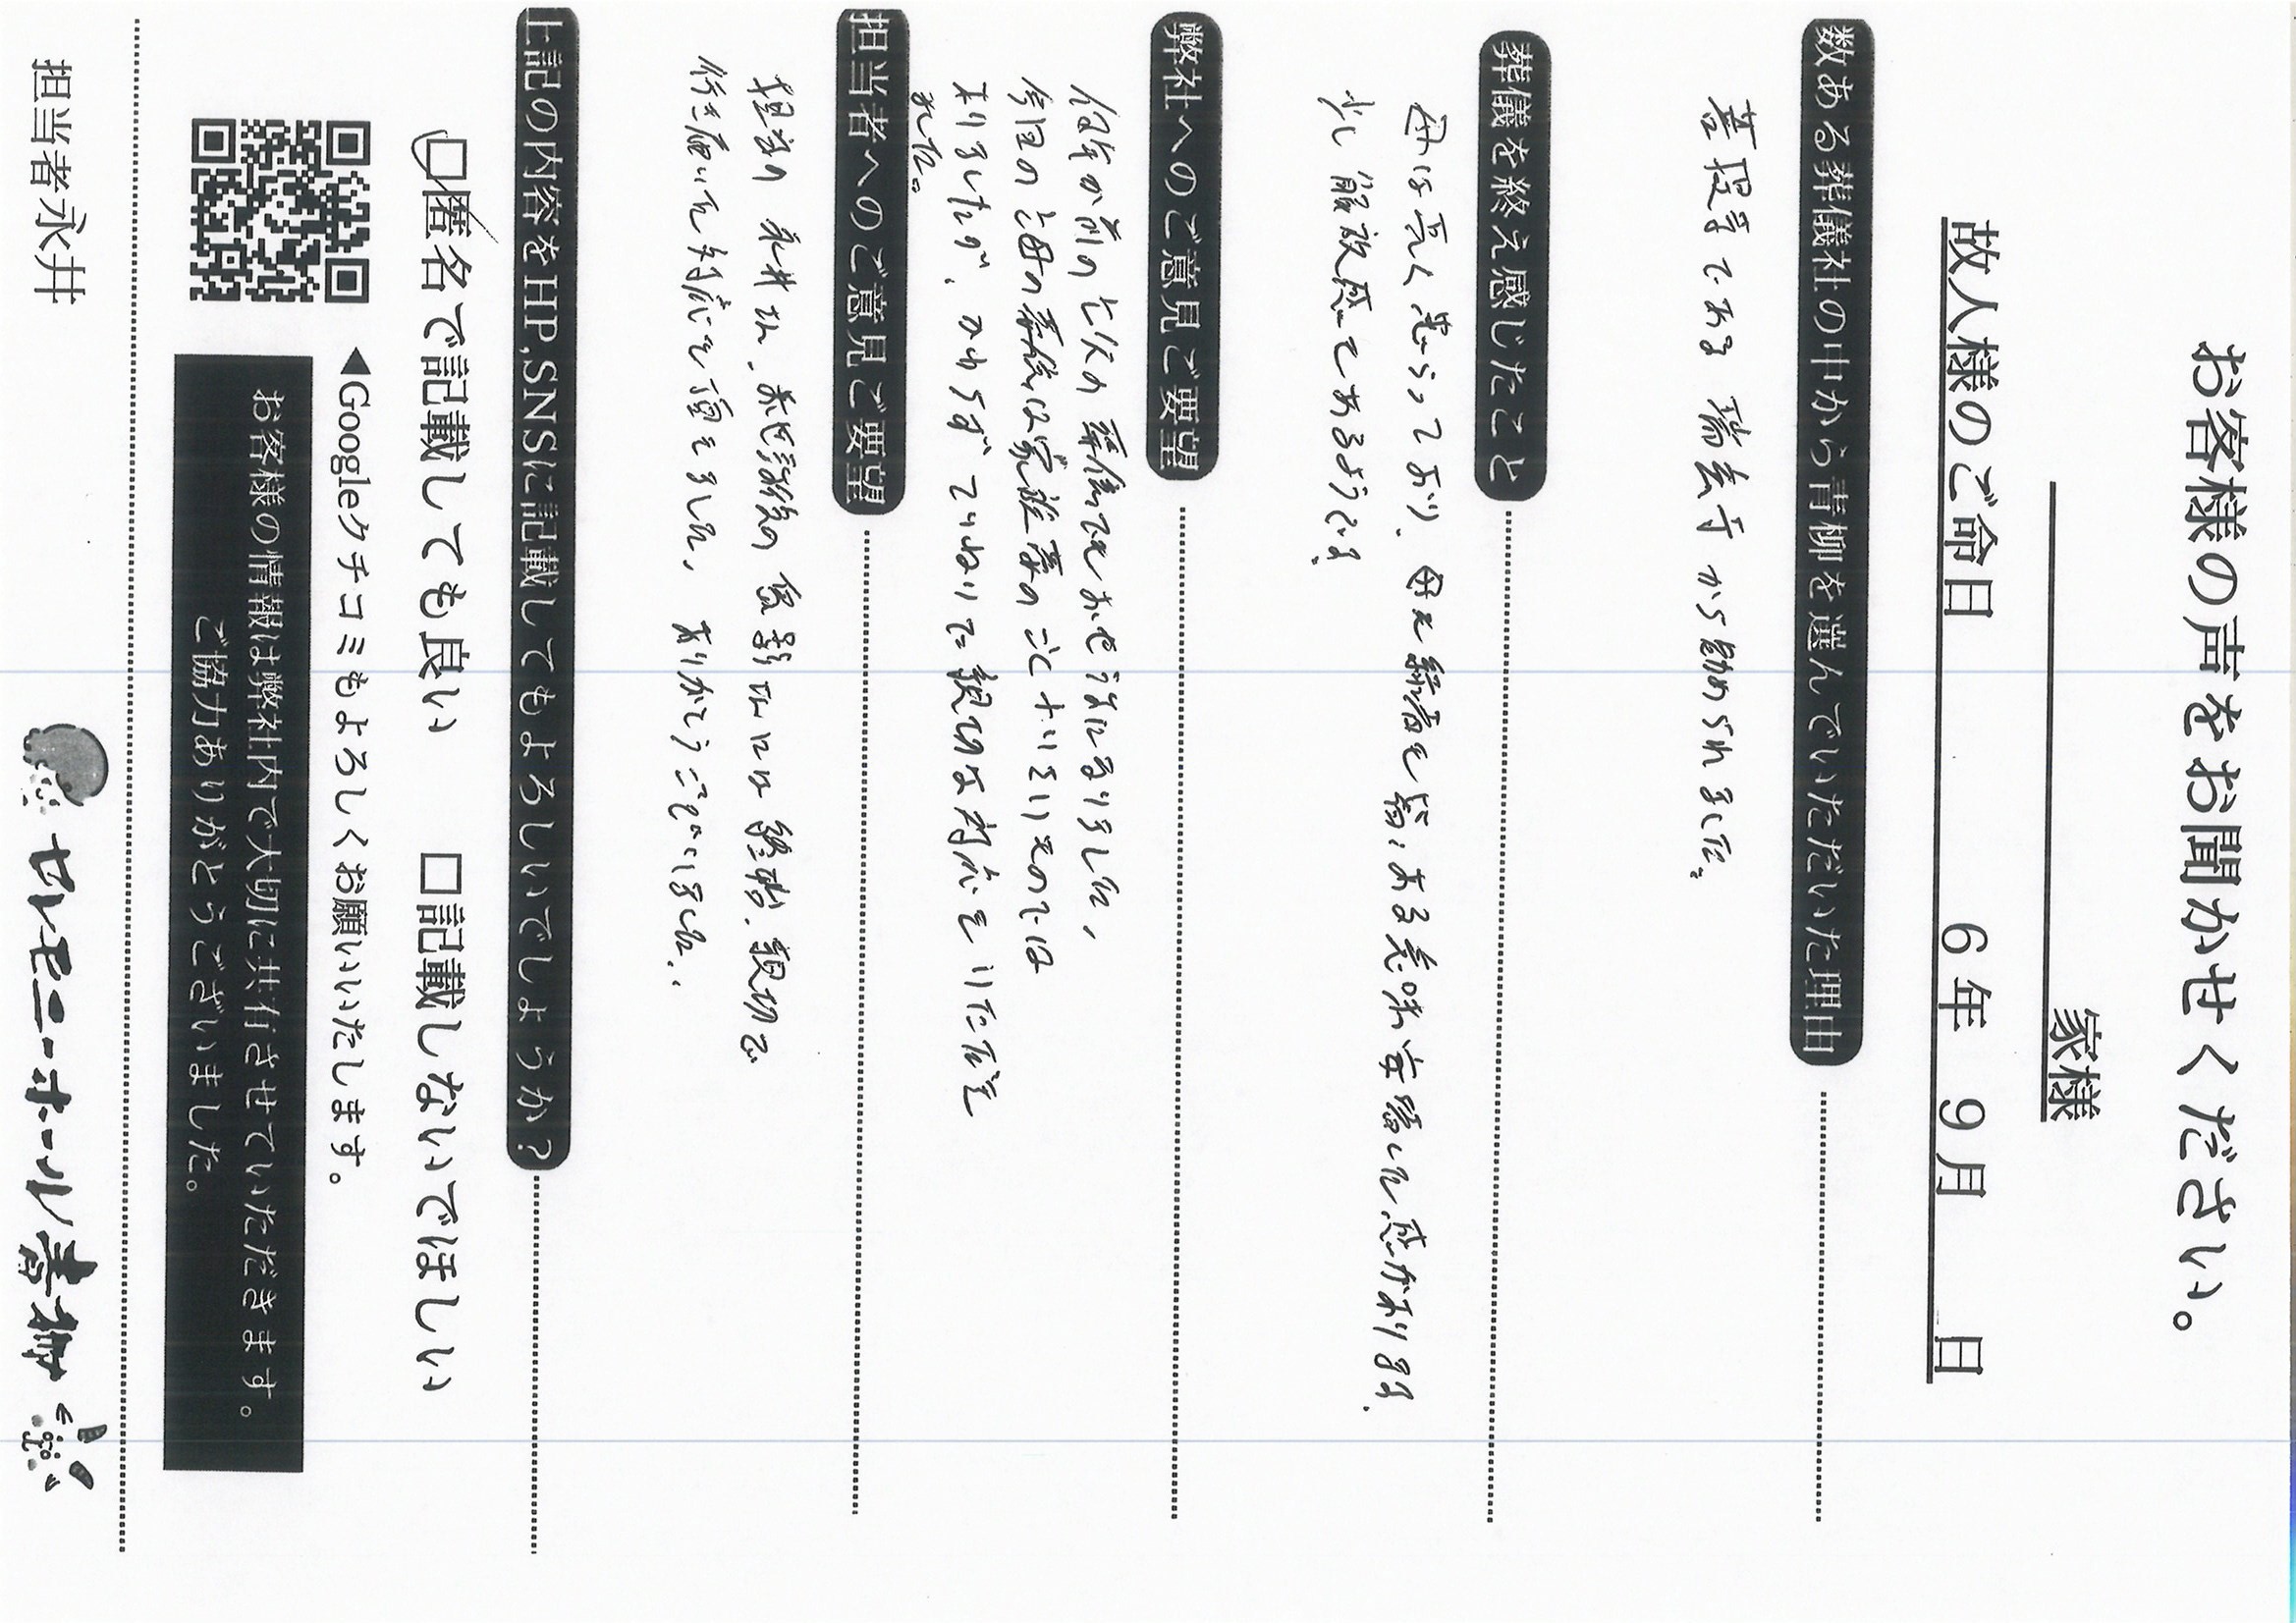 お客様の声をお聞かせください。
家様
故人様のご命日 6年 9月 日
数ある葬儀社の中から青柳を選んでいただいた理由
菩提寺である 瑞雲寺 から勧められました。
葬儀を終え感じたこと
母は長く患らっており、母も結婚も皆、ある意味安堵した感があります。
少し解放感もあるようです。
弊社へのご意見ご要望
何年か前の父の葬儀でもおせわになりました。
今回の母の葬儀は家族葬のごとナいものでは
ありましたが、かわらず ていねいで親切な対応をいただき
ました。
担当者へのご意見ご要望
担当の 永井さん、には 終始、親切で
行き届いた対応を頂きました。ありがとうございました。
上記の内容をHP,SNSに記載してもよろしいでしょうか?
□匿名で記載しても良い □記載しないでほしい
◀Googleクチコミもよろしくお願いいたします。
お客様の情報は弊社内で大切に共有させていただきます。
ご協力ありがとうございました。
担当者永井
セレモニーホール青柳